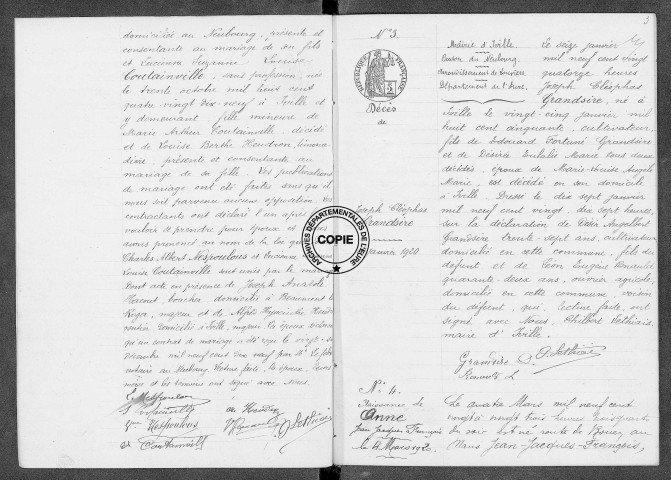 domiciliée au Neubourg, présente et
consentante au mariage de son fils
et Lucienne Suzanne Louise
Coutainville, sans profession, née
le trente octobre mil huit cent
quatre vingt dix neuf à Iville et
y demeurant, fille mineure de
Marie Arthur Coutainville, décédé
et de Louise Berthe
présente et consentante au
mariage de sa fille. Les publications
de mariage ont été faites sans qu'il
nous soit parvenu aucune opposition. Les
contractants ont déclaré l'un après
vouloir se prendre pour époux et
avons prononcé au nom de la loi que
Charles Albert Nespoulous et Lucienne
Louise Coutainville sont unis par le
dont acte en présence de Joseph Anatole
boucher domicilié à Beaumont le
Roger, majeur et de
domicilié à Iville, majeur
qu'un contrat de mariage a été reçu le vingt
décembre mil neuf cent dix neuf par Me
au Neubourg. Lecture faite, les époux,
et les témoins ont signé avec Nous.
Nespoulous
Coutainville
N° 3
RÉPUBLIQUE FRANÇAISE
Décès
de
Joseph Cléophas
Grandsire
janvier 1920
ARCHIVES DÉPARTEMENTALES DE L'EURE
COPIE
3
Mairie d'Iville
Canton du Neubourg
Arrondissement de Louviers
Département de l'Eure
Le seize janvier
mil neuf cent vingt
quatorze heures
Joseph Cléophas
Grandsire, né à
Iville le vingt-cinq janvier mil
huit cent cinquante, cultivateur,
fils de Edouard Fortuné Grandsire
et de Désirée Eulalie Marie tous deux
décédés, époux de Marie-Louise Angèle
Marie, est décédé en son domicile
à Iville. Dressé le dix sept janvier
mil neuf cent vingt, dix sept heures,
sur la déclaration de Angilbert
Grandsire trente-sept ans, cultivateur
domicilié en cette commune, fils du
défunt et de Léon Eugène Renault
quarante-deux ans, ouvrier agricole,
domicilié en cette commune, voisin
du défunt, qui, lecture faite, ont
signé avec Nous, Philbert Lethiais
maire d'Iville.
Grandsire
Renault L
N° 4.
Naissance de
Anne
Jean Jacques François
le 4 Mars 1920
Le quatre Mars mil neuf cent
vingt à vingt trois heures
du soir est né route de Rouen au
Mans Jean-Jacques-François,